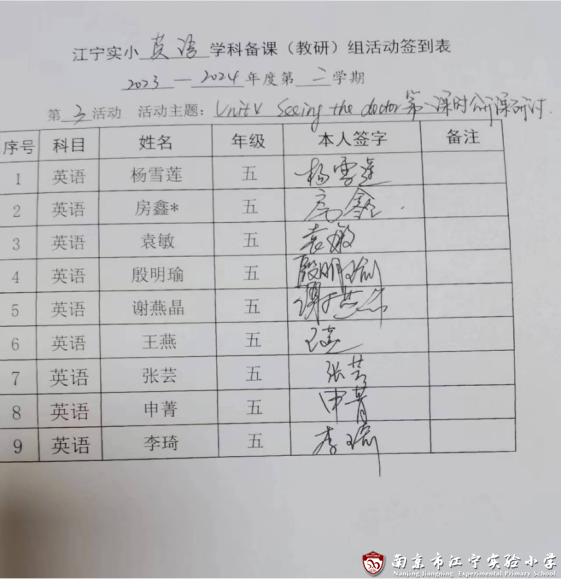 江宁实小 英语 学科备课（教研）组活动签到表
2023 — 2024 年度第 二 学期
第 3 活动 活动主题： Unit4 Seeing the doctor 第一课时公开课研讨.
序号 科目 姓名 年级 本人签字 备注
1 英语 杨雪莲 五 杨雪莲
2 英语 房鑫* 五 房鑫
3 英语 袁敏 五 袁敏
4 英语 殷明瑜 五 殷明瑜
5 英语 谢燕晶 五 谢燕晶
6 英语 王燕 五 王燕
7 英语 张芸 五 张芸
8 英语 申菁 五 申菁
9 英语 李琦 五 李琦
南京市江宁实验小学
Nanjing Jiangning Experimental Primary School